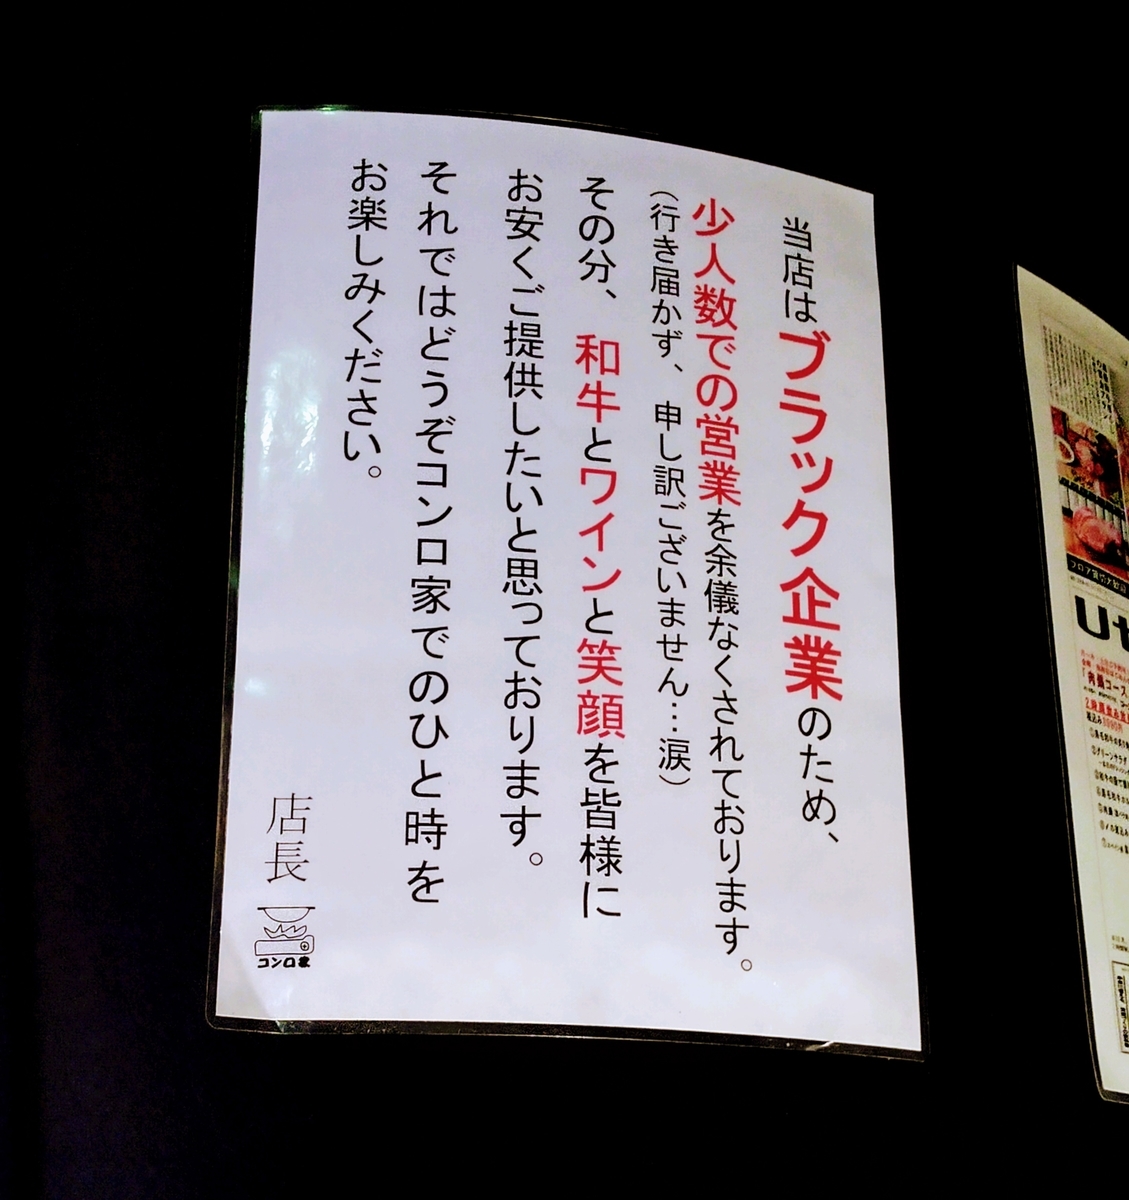 当店はブラック企業のため、
少人数での営業を余儀なくされております。
（行き届かず、申し訳ございません…涙）
その分、和牛とワインと笑顔を皆様に
お安くご提供したいと思っております。
それではどうぞコンロ家でのひと時を
お楽しみください。
店長
コンロ家